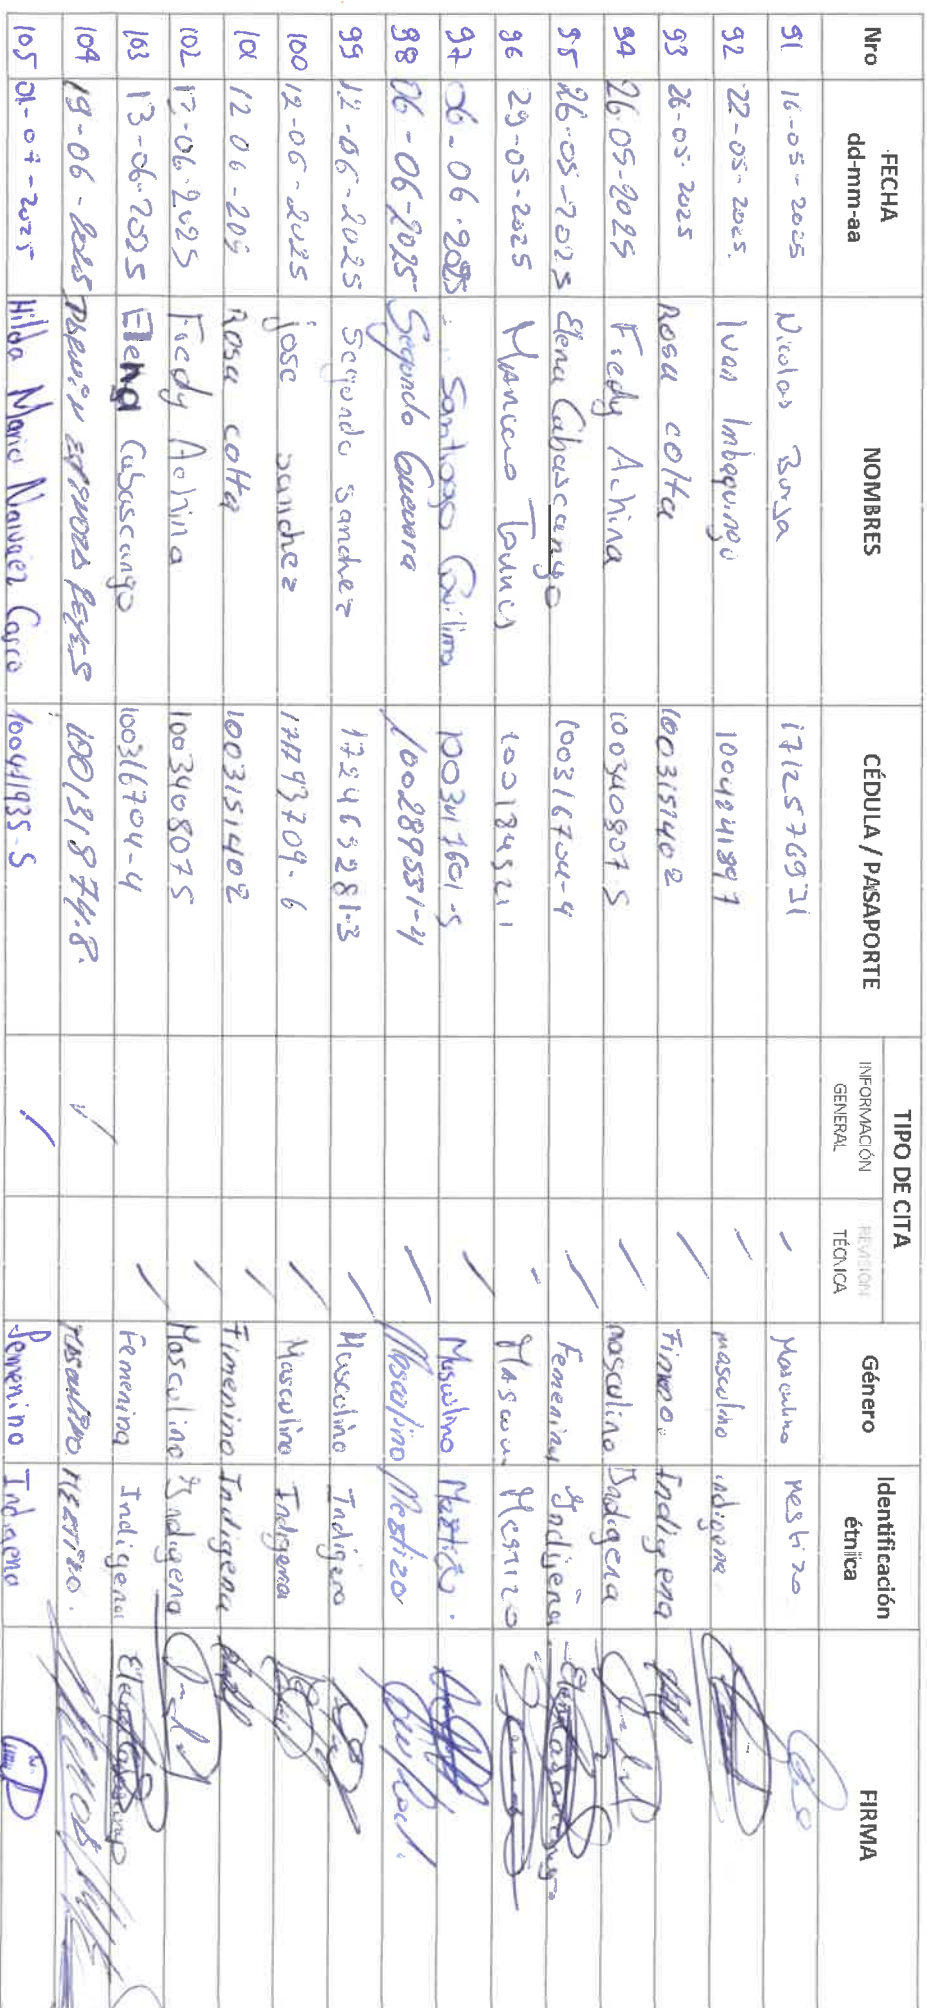 Nro FECHA dd-mm-aa NOMBRES CÉDULA / PASAPORTE TIPO DE CITA INFORMACIÓN GENERAL REVISIÓN TÉCNICA Género Identificación étnica FIRMA
91 16-05-2025 Nicolas Borja 1712576931 / Masculino Mestizo
92 22-05-2025. Ivan Imbaquingo 1004241897 / masculino indigena
93 26-05-2025 Rosa colta 1003151402 / Indigena
94 26-05-2025 Fredy Achina 1003408075 / masculino Indigena
95 26-05-2025 Elena Cabascango 100316704-4 / Femenina Indigena
96 29-05-2025 / Mestizo
97 06-06-2025 Santiago 100341601-5 / Masculino Mestizo.
98 06-06-2025 Segundo Guevara 100289531-4 / Masculino Mestizo
99 12-06-2025 Segundo sanchez 172465281-3 / Masculino Indigena
100 12-06-2025 jose sanchez / Masculino Indigena
101 12 06-209 Rosa colta 1003151402 / Fimenino Indigena
102 12-06-2025 Fredy Achina 1003408075 / Masculino Indigena
103 13-06-2025 Elena Cabascango 100316704-4 / Femenina Indigena
104 19-06-2025 REYES 100131874-8. / MASCULINO MESTIZO.
105 01-07-2025 Hilda Maria Narvaez Casco 100411935-5 / Femenino Indigena